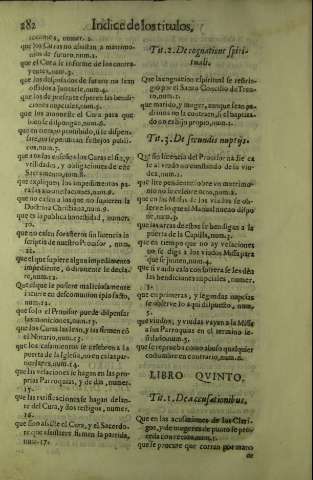 282 Indice de los titulos,
que los Curas no assistan a matrimo-
nios de futuro, num.1.
que el Cura se informe de los contra-
yentes, num.3.
que los desposados de futuro no sean
ossados a juntarse, num.4.
que los de presente esperen las bendi-
ciones nupciales, num.4.
que los amoneste el Cura para que
no
que en
sare, no se permitan festejos publi-
cos, num.7.
que a todos enseñe los Curas el fin, y
vtilidades, y obligaciones de este
Sacramento, num.8.
que expliquen los impedimentos pa-
ra las amonestaciones, num.
que no casen a los que no supieren la
Doctrina Christiana, num.9.
que es la publica honestidad, numer.
10.
que no casen forasteros sin licencia in
scriptis de nuestro Prouisor, num.
que el que supiere algun impedimento
impediente, ò dirimente le decla-
re, num.12.
Que el que le pusiere maliciosamente
incurre en descomunion ipso facto,
num.12.
que solo el Prouisor puede dispensar
las moniciones, num.13.
que los Curas las lean, y las firmen cõ
el Notario, num.13.
que los casamientos se celebren a la
puerta de la Iglesia, no en casas par-
ticulares, num.14.
que las velaciones se hagan en las pro-
prias Parroquias, y de dia, numer.
15.
que las ratificaciones se hagan delan-
te del Cura, y dos testigos, numer.
16.
que sino assiste el Cura, y el Sacerdo-
te que assistiere firmen la partida,
num.17.
Tit. 2. De cognatione spiri-
tuali.
Que la cognation espiritual se restrin-
gio por el Santo Concilio de Tren-
to, num.1.
que marido, y muger, aunque sean pa-
drinos no la contraen, si el baptiza-
do no es hijo proprio, num.
Tit. 3. De secundis nuptijs.
Que sin licencia del Prouisor no se ca-
se al viudo no constando de la viu-
dez, num.1.
que
nio no se
que en las Missas de los viudos se ob-
serue lo que el Manual nueuo dispo-
ne, num.
que las arras de estos se bendigan a la
puerta de la Capilla, num.3.
que en tiempo que no ay velaciones
no se diga a los viudos Missa para
que se junten, num.4.
que si viudo casa con soltera se les dên
las bendiciones nupciales, numer.
que en primeras, y segundas nupcias
se obserue lo aqui dispuesto, num.
que viudos, y viudas vayan a la Missa
a sus Parroquias en el termino se-
ñalado, num.
que se reprueba como abuso qualquier
costumbre en contrario, num.6.
LIBRO QVINTO.
Tit. 1. De accusationibus.
Que en las acusaciones de los Cleri-
gos, y de mugeres de punto se pro-
ceda con recato, num.
que se procure que corran por mano
de